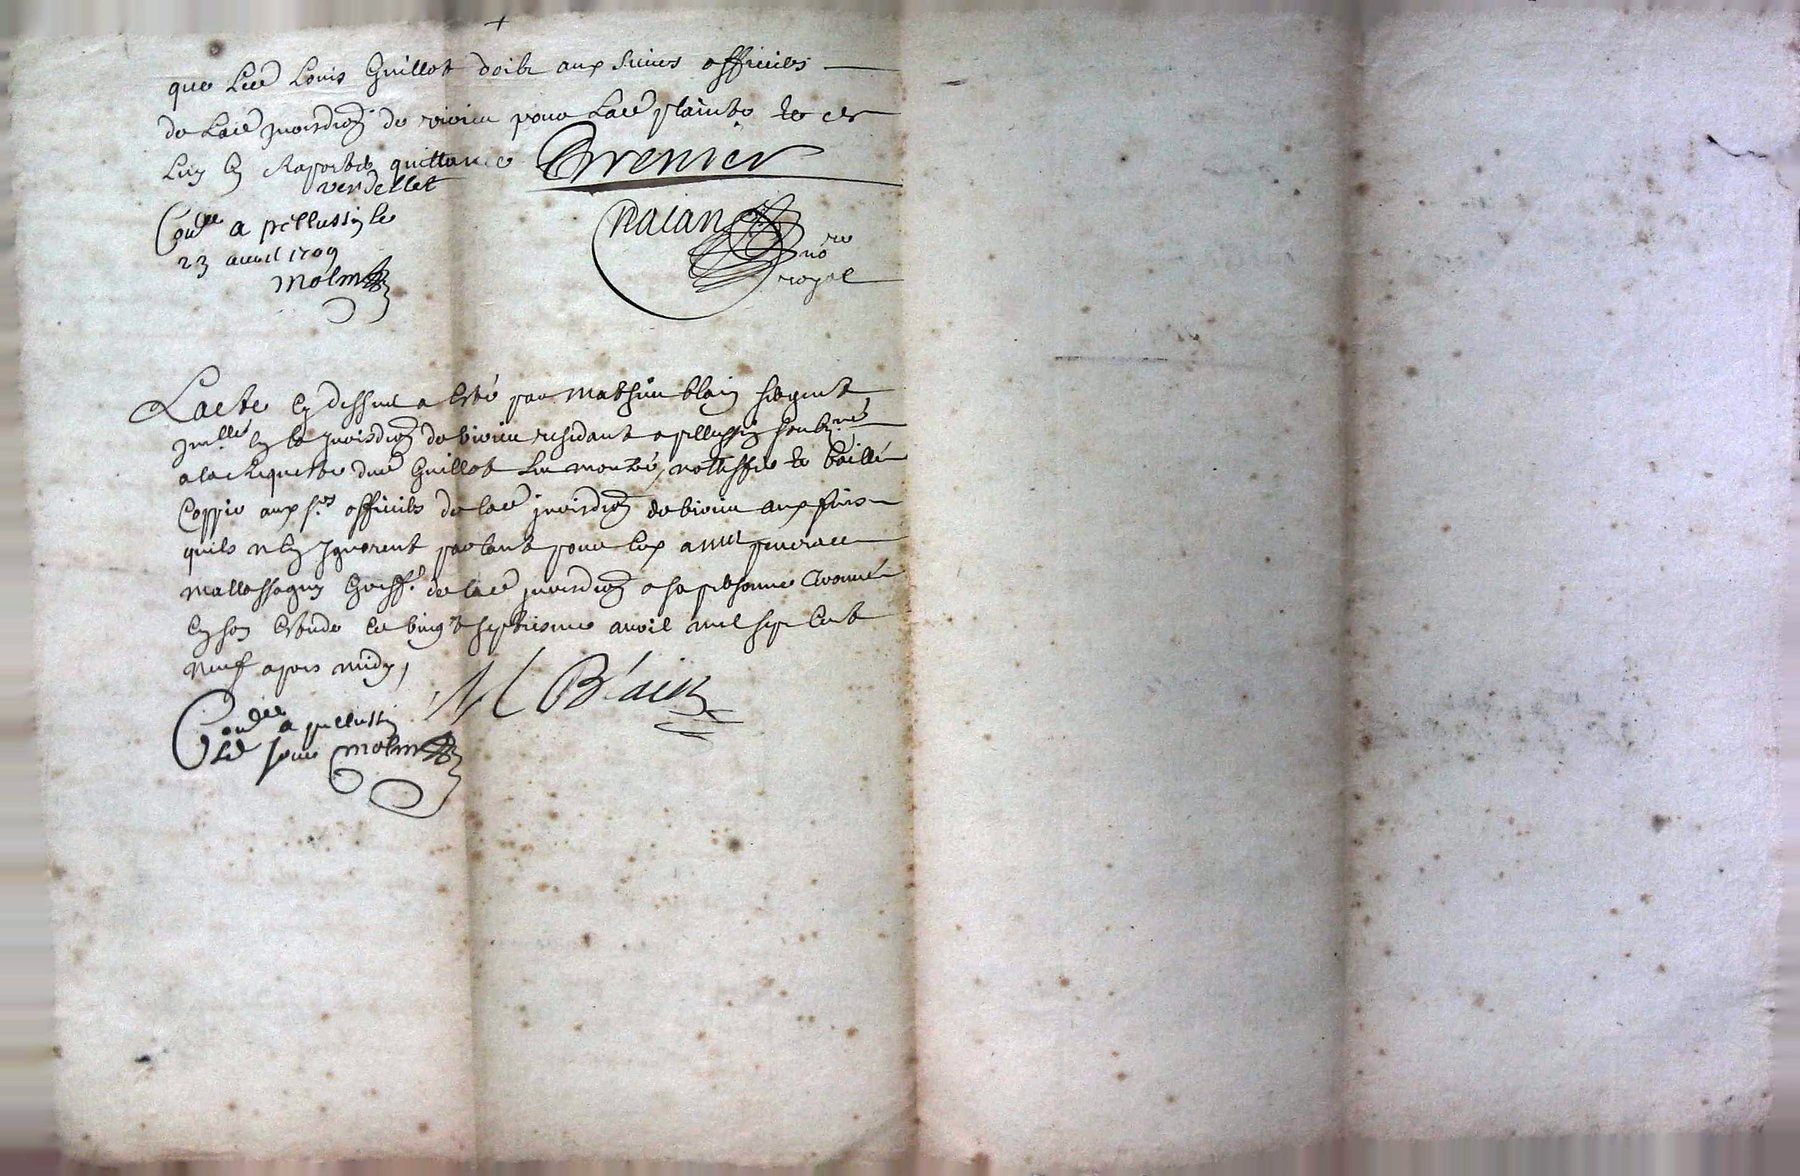 que led Louis Guillot doibt aux sieurs officiers
de lad jurisdion de virieu pour lad plainte et de
luy en raporter quittance Grenier
verdellet
Conlle a pellussin le
23 avril 1709
molin
Racan
nore
royal
Lacte cy dessus a esté par Mathieu blain sergent
en la jurisdion de virieu residant a pellussin soubne
a la requeste dud Guillot len montré, nottiffié et baillé
Coppie aux srs officiers de lad jurisdion de virieu aux fins
quils nen Ignorent parlant pour eux a
Mallassagny Greff. de lad jurisdion a sa personne trouvé
en son estude le vingt septiesme avril mil sept cent
neuf apres midy,
M Blain
Conlle a pellussin
led jour molin